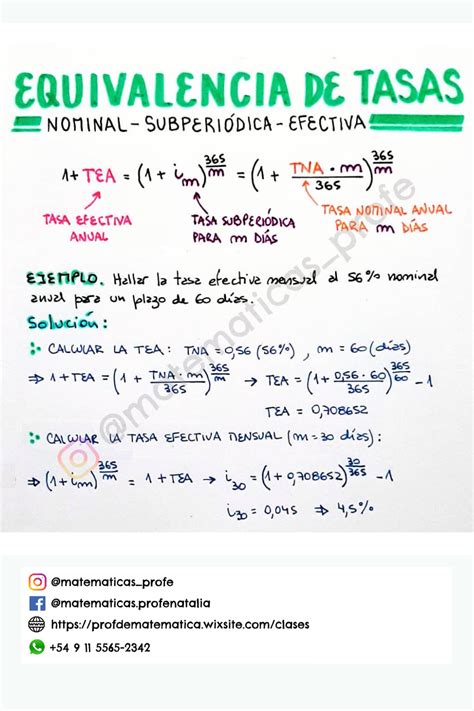 EQUIVALENCIA DE TASAS
NOMINAL - SUBPERIÓDICA - EFECTIVA
1+TEA = (1 + i_m)^(365/m) = (1 + TNA · m / 365)^(365/m)
TASA EFECTIVA ANUAL
TASA SUBPERIÓDICA PARA m DÍAS
TASA NOMINAL ANUAL PARA m DÍAS
EJEMPLO. Hallar la tasa efectiva mensual al 56% nominal
anual para un plazo de 60 días.
Solución:
CALCULAR LA TEA: TNA = 0,56 (56%), m = 60 (días)
⇒ 1+TEA = (1 + TNA · m / 365)^(365/m) → TEA = (1 + 0,56 · 60 / 365)^(365/60) - 1
TEA = 0,708652
CALCULAR LA TASA EFECTIVA MENSUAL (m = 30 días):
⇒ (1 + i_m)^(365/m) = 1 + TEA → i_30 = (1 + 0,708652)^(30/365) - 1
i_30 = 0,045 ⇒ 4,5%
@matematicas_profe
@matematicas_profe
@matematicas.profenatalia
https://profdematematica.wixsite.com/clases
+54 9 11 5565-2342